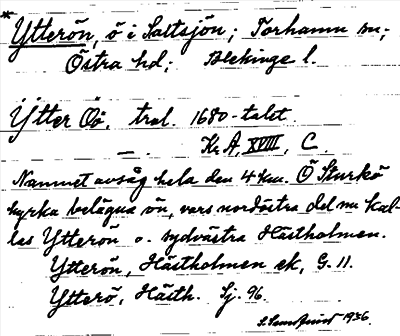 * Ytterön, ö i Saltsjön; Torhamn sn;
Östra hd; Blekinge l.
Ÿtter Öö, tral. 1680-talet.
— . Kr. A, XVIII, C.
Namnet avsåg hela den 4 km. Ö Sturkö
kyrka belägna ön, vars nordöstra del nu kal-
las Ytterön o. sydvästra Hästholmen.
Ytterön, Hästholmen ek, G. 11.
Ytterö, Hästh. Sj. 96.
1936